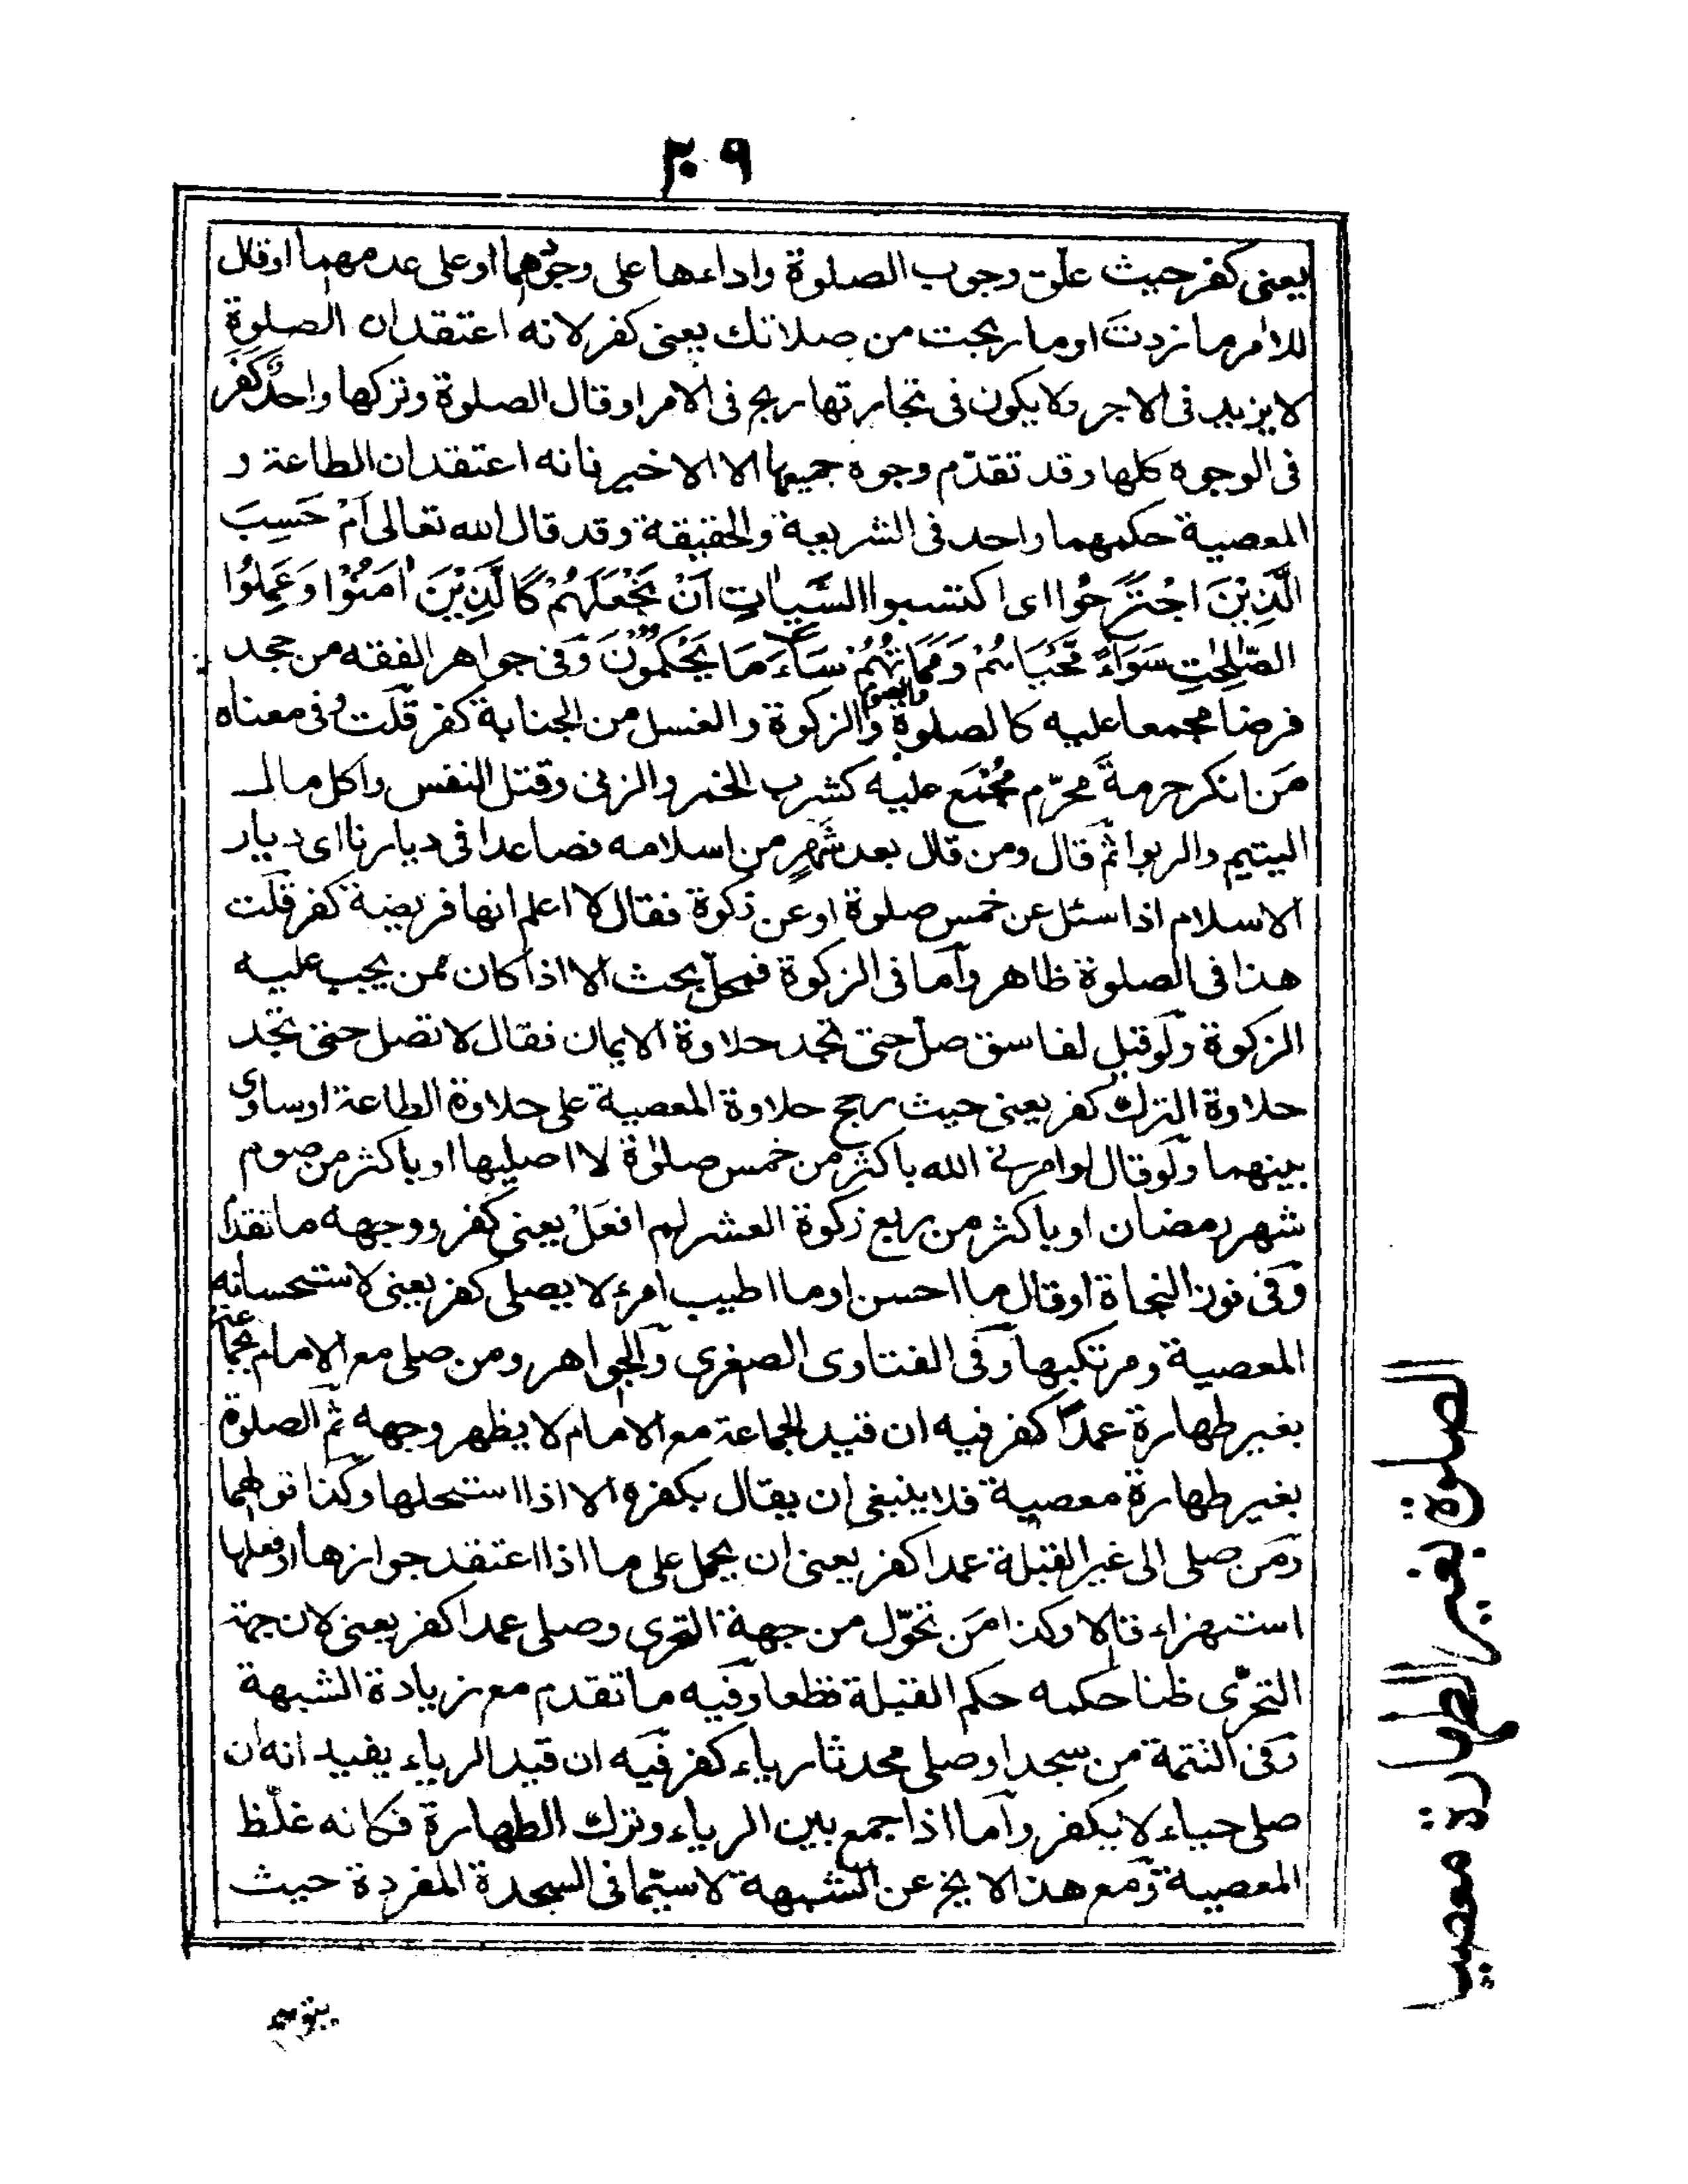 ٢٠٩
يعنى كفر حيث علّق وجوب الصلوة واداءها على وجودهما او على عدمهما او قال
للامر ما زدتَ او ما ربحت من صلاتك يعنى كفر لانه اعتقد ان الصلوة
لا يزيد فى الاجر ولا يكون فى تجارتها ربح فى الامر او قال الصلوة وتركها واحدٌ كفَرَ
فى الوجوه كلها وقد تقدّم وجوه جميعها الا الاخير فانه اعتقد ان الطاعة و
المعصية حكمهما واحد فى الشريعة والحقيقة وقد قال الله تعالى اَمْ حَسِبَ
الَّذِيْنَ اجْتَرَحُوا اى اكتسبوا السَّيِّاٰتِ اَنْ نَجْعَلَهُمْ كَالَّذِيْنَ اٰمَنُوْا وَعَمِلُوْا
الصّٰلِحٰتِ سَوَاءً مَّحْيَاهُمْ وَمَمَاتُهُمْ سَاءَ مَا يَحْكُمُوْنَ وفى جواهر الفقه من جحد
فرضا مجمعا عليه كالصلوة والصوم والزكوة والغسل من الجنابة كفر قلت وفى معناه
مَن انكر حرمةَ محرّم مُجْمَع عليه كشرب الخمر والزنى وقتل النفس واكل مال
اليتيم والربوا ثم قال ومن قال بعد شَهرٍ من اسلامه فصاعدا فى ديارنا اى ديار
الاسلام اذا سئل عن خمس صلوة او عن زكوة فقال لا اعلم انها فريضة كفر قلت
هذا فى الصلوة ظاهر واما فى الزكوة فمحلّ بحث الا اذا كان ممن يجب عليه
الزكوة ولو قيل لفاسق صلّ حتى تجد حلاوة الايمان فقال لا تصل حتى تجد
حلاوة الترك كفر يعنى حيث رجح حلاوة المعصية على حلاوة الطاعة او ساوى
بينهما ولو قال لو امرنى الله باكثر من خمس صلوٰة لا اصليها او باكثر من صوم
شهر رمضان او باكثر من ربع زكوة العشر لم افعَلْ يعنى كفر ووجهه ما تقدم
وفى فوز النجاة او قال ما احسن او ما اطيب امرءً لا يصلى كفر يعنى لاستحسانه
المعصية ومرتكبها وفى الفتاوى الصغرى والجواهر ومن صلى مع الامام بجماعة
بغير طهارة عمدًا كفر فيه ان قيد الجماعة مع الامام لا يظهر وجهه ثم الصلوة
بغير طهارة معصية فلا ينبغى ان يقال بكفره الا اذا استحلها وكذا قولهما
ومَن صلى الى غير القبلة عمدا كفر يعنى ان يحمل على ما اذا اعتقد جوازها او فعلها
استهزاء قالا وكذا مَن تحوّل من جهة التحرى وصلى عمدا كفر يعنى لان جهة
التحرّى ظنا حكمه حكم القبلة قطعا وفيه ما تقدم مع زيادة الشبهة
وفى التتمة من سجد او صلى محدثا رياء كفر فيه ان قيد الرياء يفيد انه ان
صلى حياء لا يكفر واما اذا جمع بين الرياء وترك الطهارة فكانه غلّظ
المعصية ومع هذا لا يخ عن الشبهة لا سيّما فى السجدة المفردة حيث
الصلوة بغير الطهارة معصية